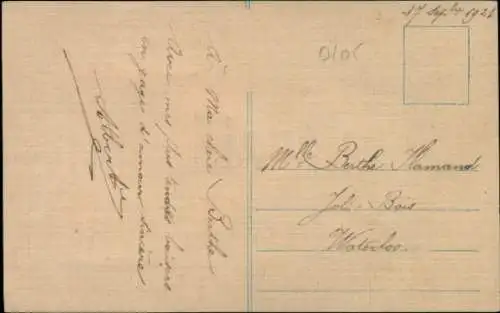 17 Sepbre 1921
À Ma chère Berthe
Avec mes plus tendres baisers
en gage d'amour sincère.
Albert
Mlle Berthe Hamand
Joli-Bois
Waterloo.